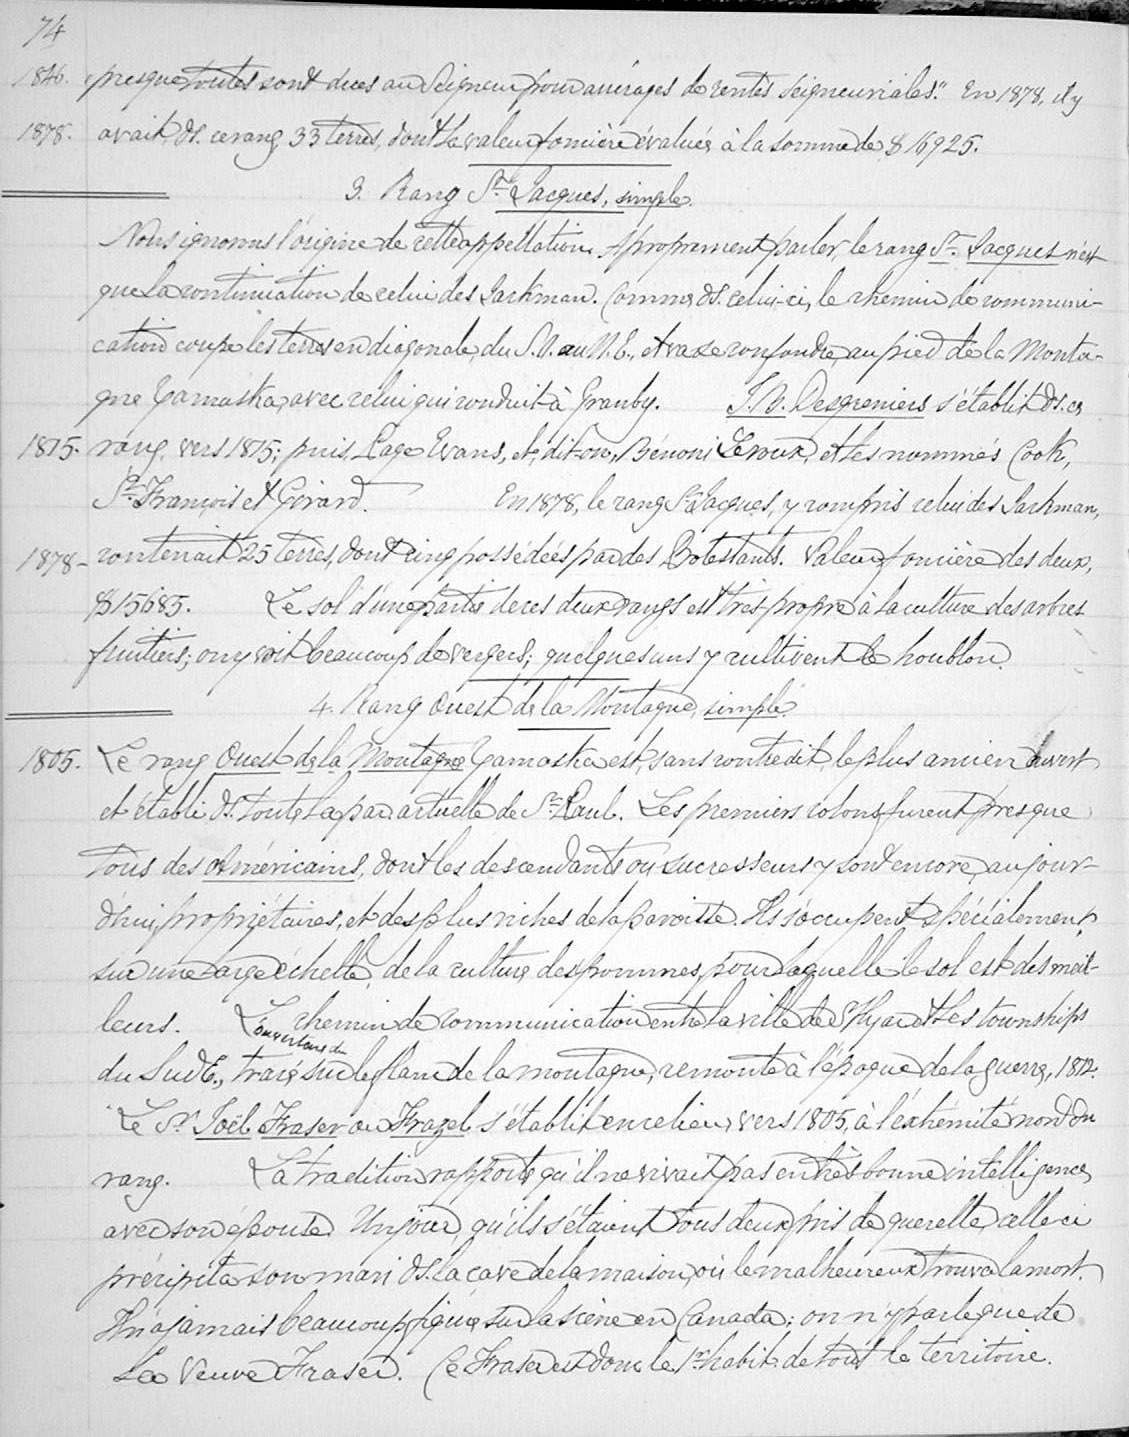 74
1846. presque toutes sont dues au Seigneur pour arrérages de rentes seigneuriales." En 1878, il y
1878. avait, ds. ce rang, 33 terres, dont la valeur foncière évaluée à la somme de $16925.
3. Rang St. Jacques, simple.
Nous ignorons l'origine de cette appellation. A proprement parler, le rang St. Jacques n'est
que la continuation de celui des Jackman. Comme, ds. celui-ci, le chemin de communi-
cation coupe les terres en diagonale, du S.O. au N.E., et va se confondre, au pied de la Monta-
gne Yamaska, avec celui qui conduit à Granby. J.B. Desgreniers s'établit ds. ce
1815. rang, vers 1815; puis, Page Evans, et, dit-on, Bénoni Leroux, et les nommés Cook,
St. François et Girard. En 1878, le rang St. Jacques, y compris celui des Jackman,
1878- contenait 25 terres, dont cinq possédées par des Protestants. Valeur foncière des deux,
$15685. Le sol d'une partie de ces deux rangs est très-propre à la culture des arbres
fruitiers; on y voit beaucoup de vergers; quelques uns y cultivent le houblon.
4. Rang Ouest de la Montagne, simple.
1805. Le rang Ouest de la Montagne Yamaska est, sans contredit, le plus ancien ouvert
et établi ds. toute la par. actuelle de St. Paul. Les premiers colons furent presque
tous des Américains, dont les descendants ou successeurs y sont encore, aujour-
d'hui, propriétaires, et des plus riches de la paroisse. Ils s'occupent spécialement,
sur une large échelle, de la culture des pommes, pour laquelle le sol est des meil-
leurs. L'ouverture du chemin de communication entre la ville de St Hyac. et les townships
du Sud E., tracé sur le flanc de la montagne, remonte à l'époque de la guerre, 1812.
Le Sr. Joël Fraser ou Frazel s'établit en ce lieu, vers 1805, à l'extrémité nord du
rang. La tradition rapporte qu'il ne vivait pas en très bonne intelligence,
avec son épouse. Un jour, qu'ils s'étaient tous deux pris de querelle, celle-ci
précipita son mari ds. la cave de la maison, où le malheureux trouva la mort.
Il n'a jamais beaucoup figuré sur la scène en Canada; on n'y parle que de
La Veuve Fraser. Ce Fraser est donc le 1er habit. de tout le territoire.